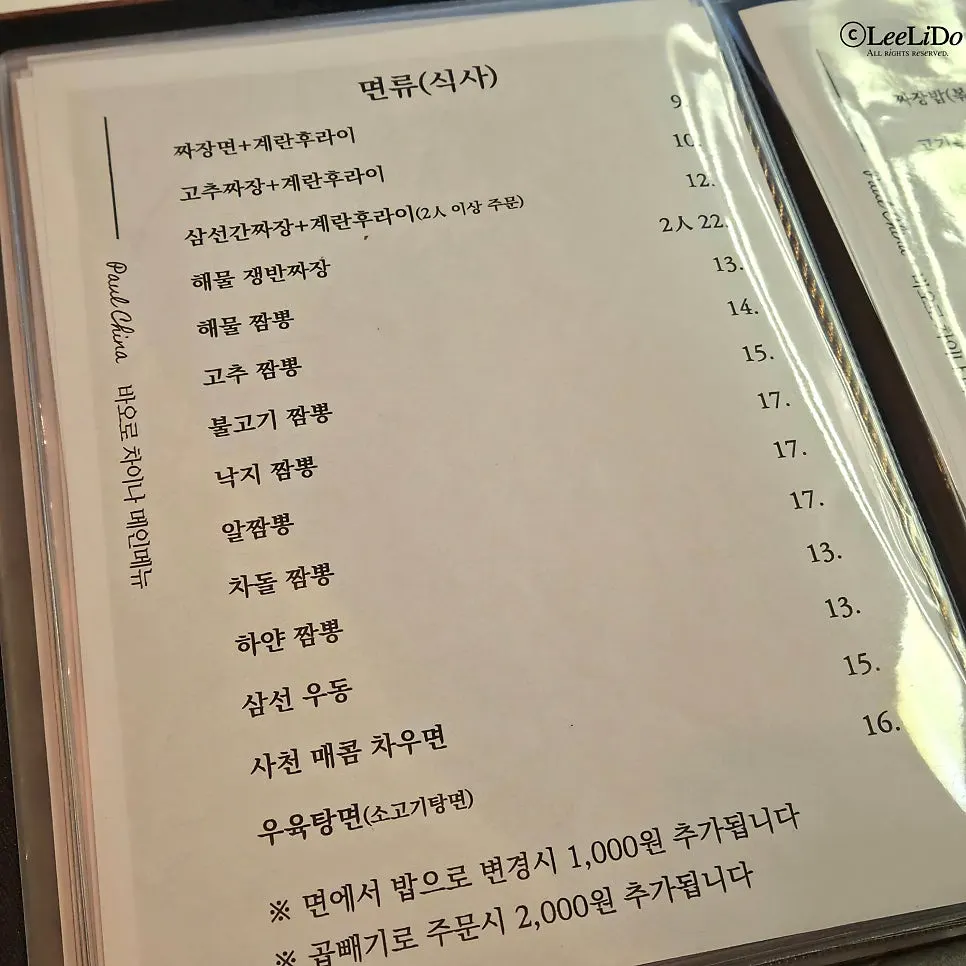 면류(식사)
짜장면+계란후라이 9.
고추짜장+계란후라이 10.
삼선간짜장+계란후라이(2人 이상 주문) 12.
해물 쟁반짜장 2人 22.
해물 짬뽕 13.
고추 짬뽕 14.
불고기 짬뽕 15.
낙지 짬뽕 17.
알짬뽕 17.
차돌 짬뽕 17.
하얀 짬뽕 13.
삼선 우동 13.
사천 매콤 차우면 15.
우육탕면(소고기탕면) 16.
※ 면에서 밥으로 변경시 1,000원 추가됩니다
※ 곱빼기로 주문시 2,000원 추가됩니다
Paul China 바오로 차이나 메인메뉴
짜장밥(볶
Paul China
©LeeLiDo
ALL RIGHTS RESERVED.